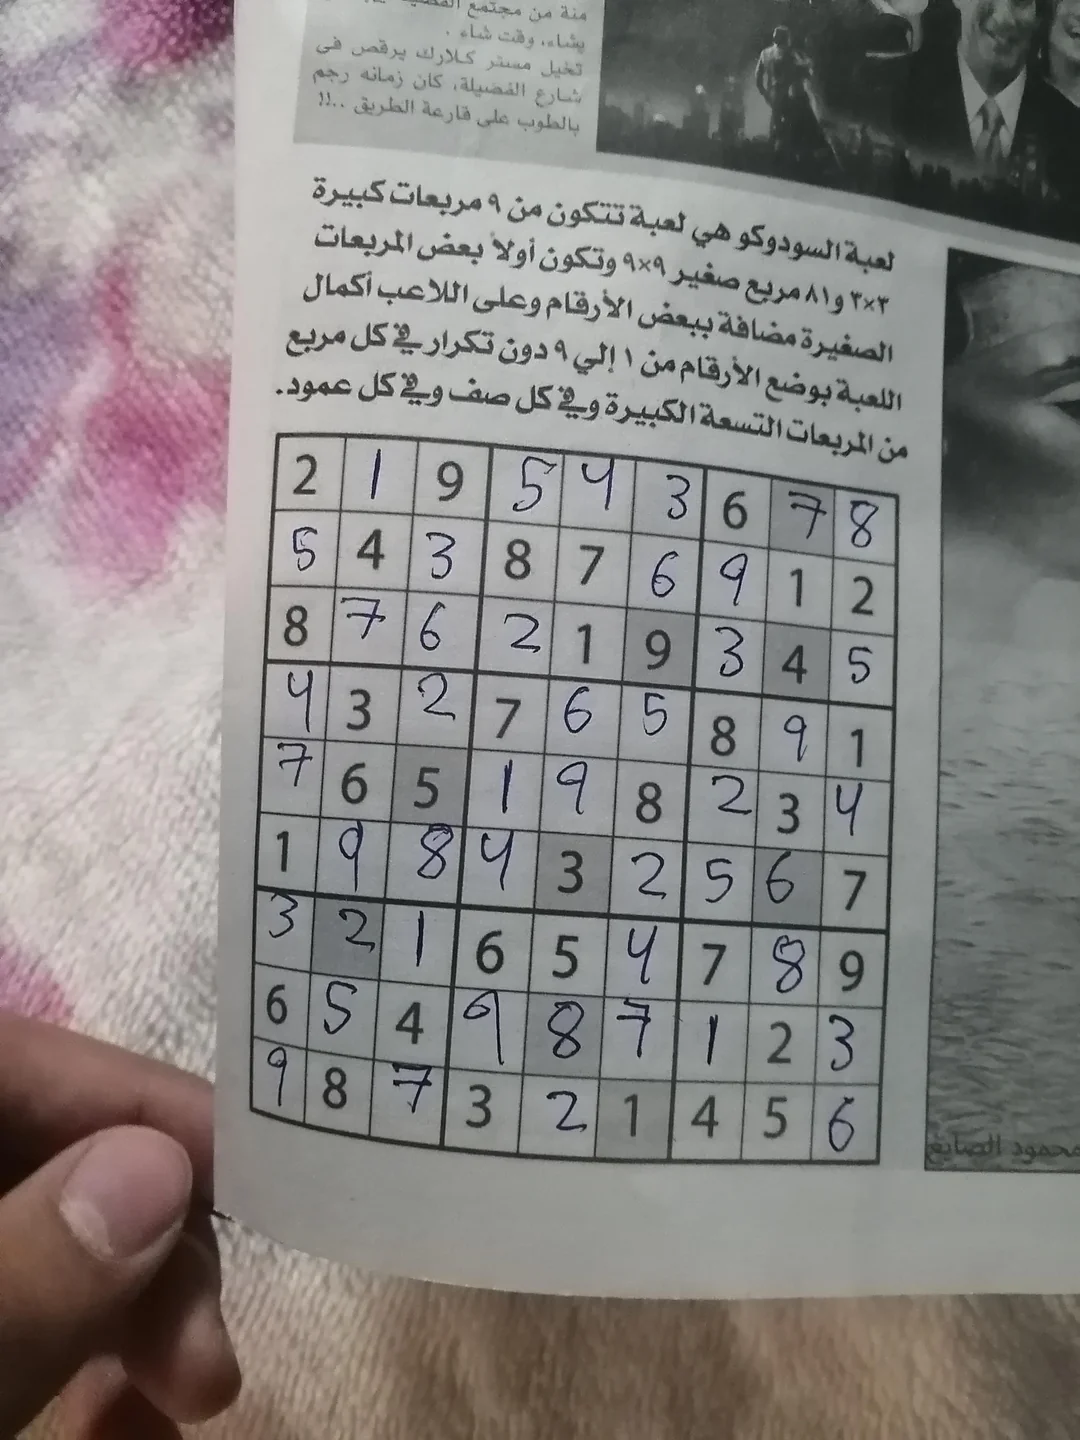 منة من مجتمع
يشاء، وقت شاء .
تخيل مستر كلارك يرقص فى
شارع الفضيلة، كان زمانه رجم
بالطوب على قارعة الطريق ..!!
لعبة السودوكو هي لعبة تتكون من ٩ مربعات كبيرة
٣×٣ و٨١ مربع صغير ٩×٩ وتكون أولاً بعض المربعات
الصغيرة مضافة ببعض الأرقام وعلى اللاعب أكمال
اللعبة بوضع الأرقام من ١ إلي ٩ دون تكرار في كل مربع
من المربعات التسعة الكبيرة وفي كل صف وفي كل عمود.
2 1 9 5 4 3 6 7 8
5 4 3 8 7 6 9 1 2
8 7 6 2 1 9 3 4 5
4 3 2 7 6 5 8 9 1
7 6 5 1 9 8 2 3 4
1 9 8 4 3 2 5 6 7
3 2 1 6 5 4 7 8 9
6 5 4 9 8 7 1 2 3
9 8 7 3 2 1 4 5 6
محمود الصايغ